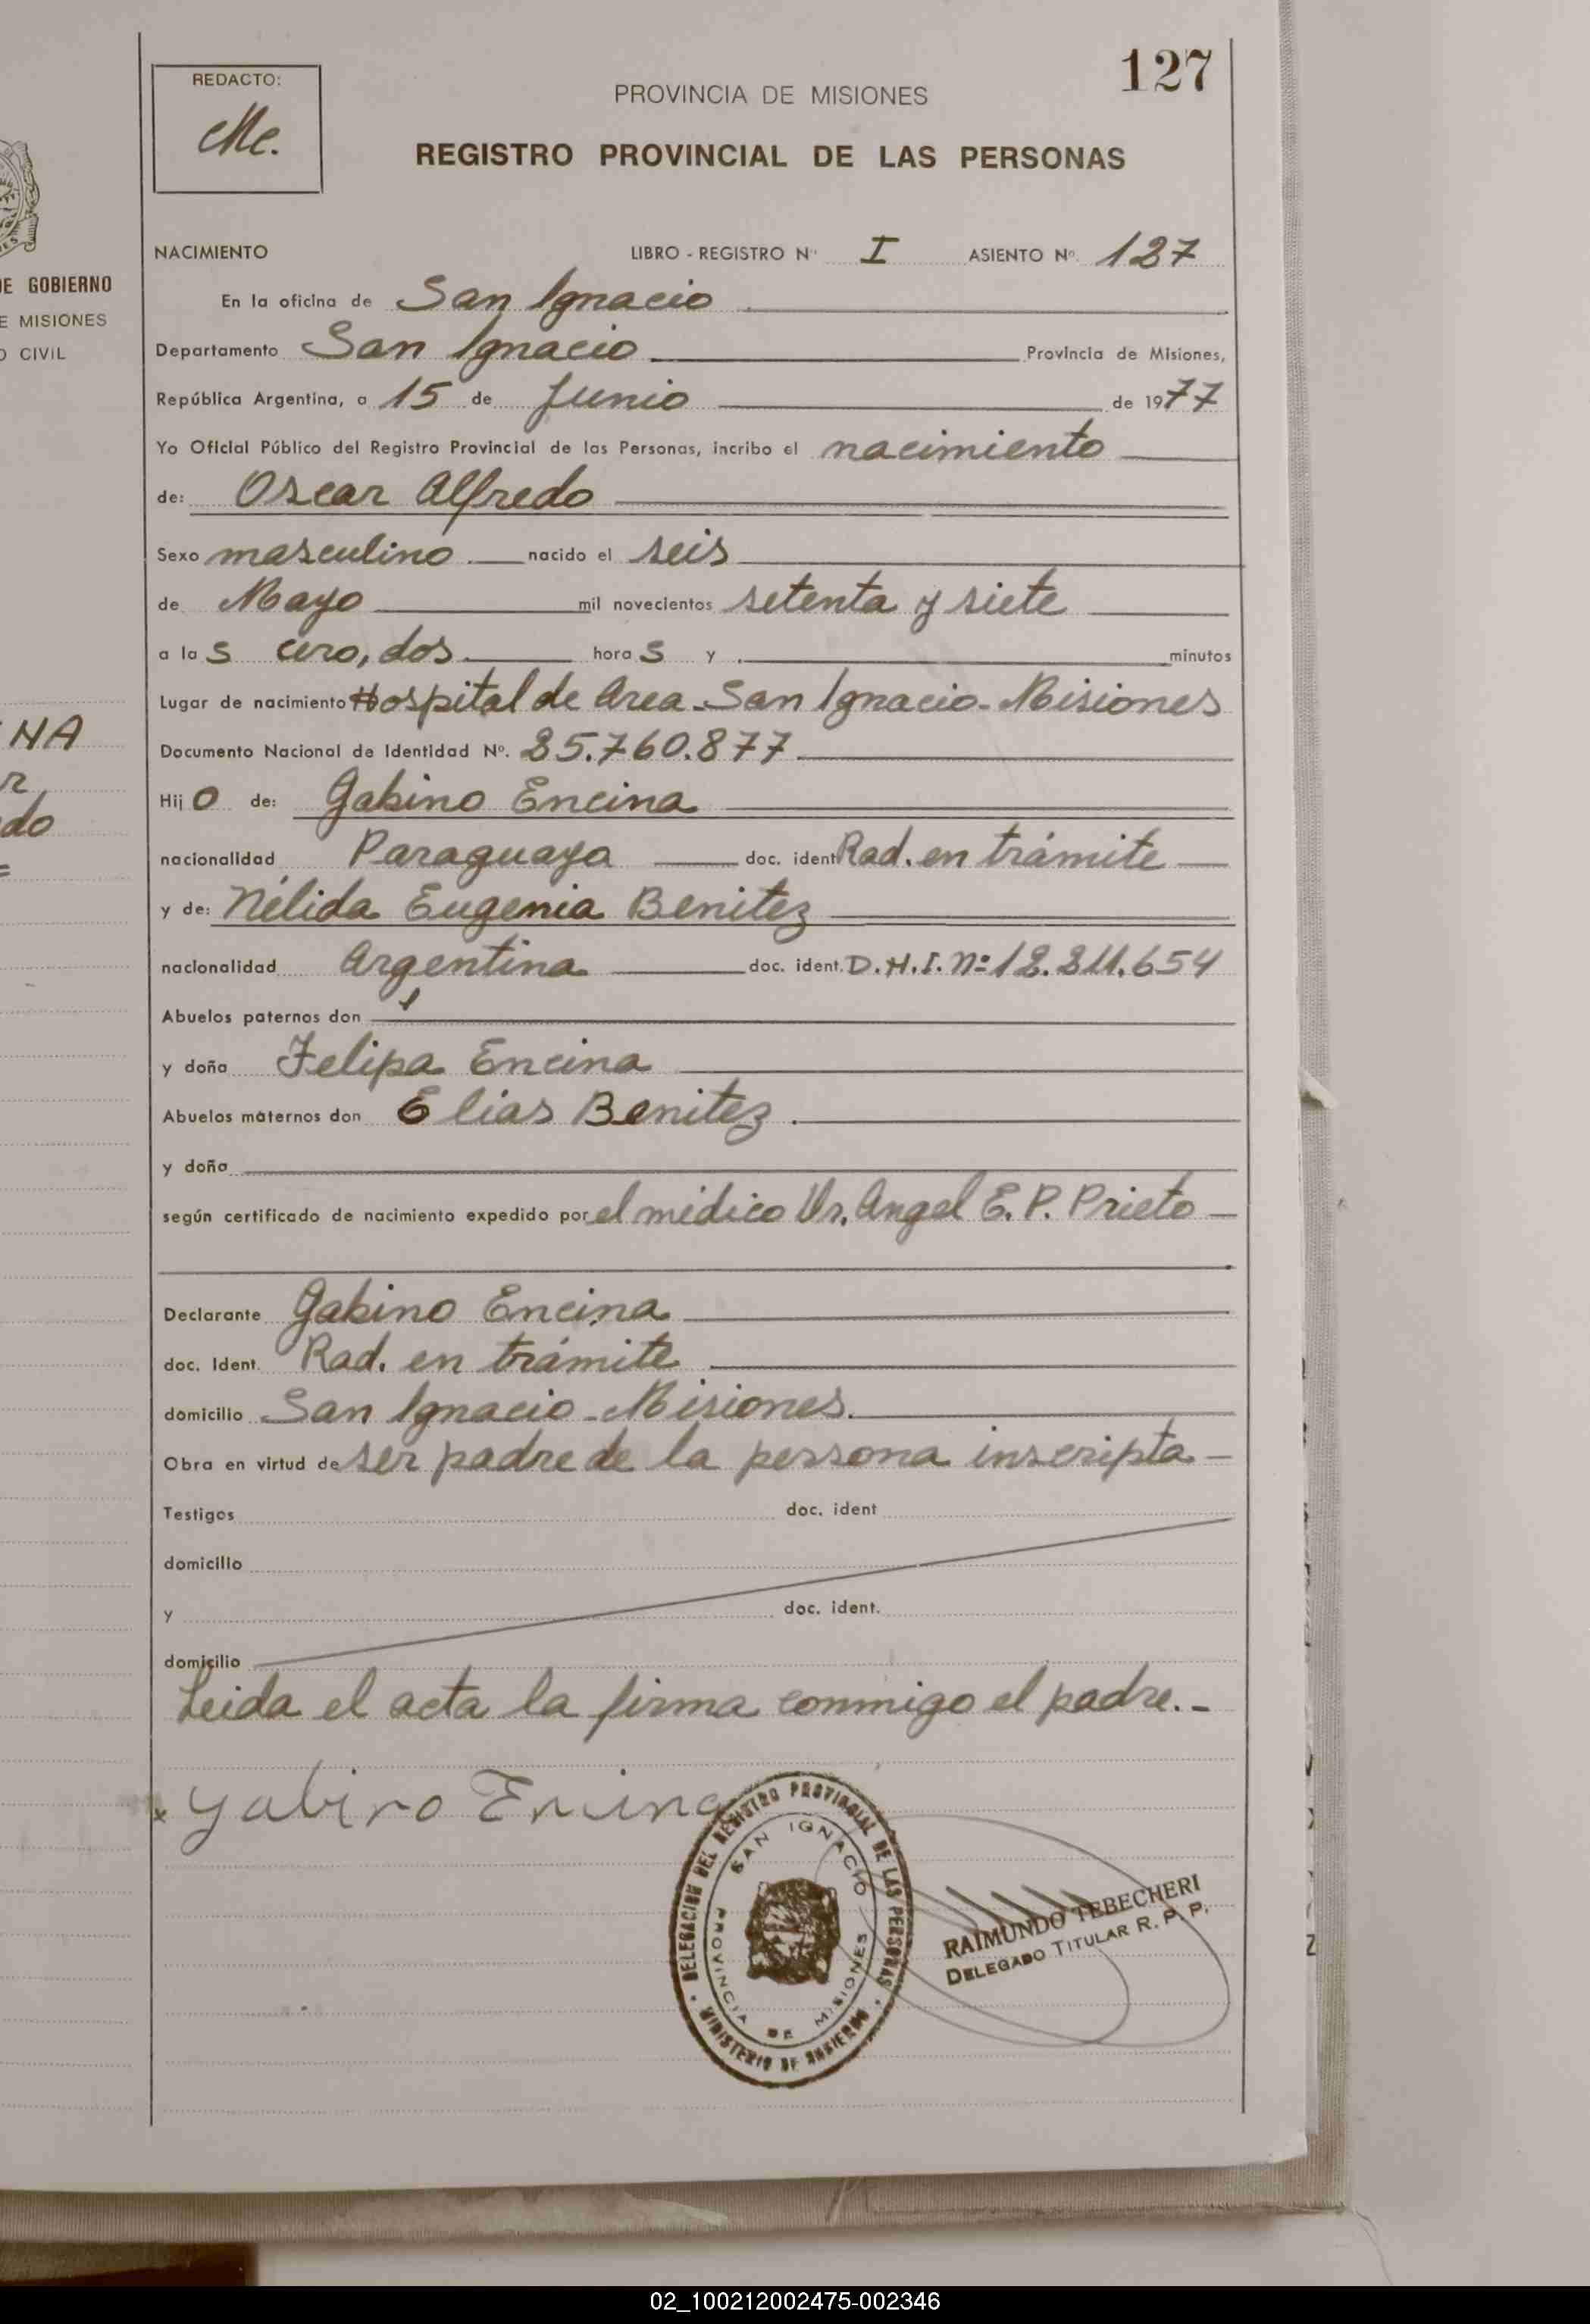 127
REDACTO:
Me.
PROVINCIA DE MISIONES
REGISTRO PROVINCIAL DE LAS PERSONAS
NACIMIENTO LIBRO - REGISTRO Nº I ASIENTO Nº 127
En la oficina de San Ignacio
Departamento San Ignacio Provincia de Misiones,
República Argentina, a 15 de Junio de 1977
Yo Oficial Público del Registro Provincial de las Personas, incribo el nacimiento
de: Oscar Alfredo
Sexo masculino nacido el seis
de Mayo mil novecientos setenta y siete
a las cero, dos horas y minutos
Lugar de nacimiento Hospital de Area - San Ignacio - Misiones
Documento Nacional de Identidad Nº. 25.760.877
Hijo de: Gabino Encina
nacionalidad Paraguaya doc. ident Rad. en trámite
y de: Nélida Eugenia Benitez
nacionalidad Argentina doc. ident. D.N.I. Nº 12.211.654
Abuelos paternos don
y doña Felipa Encina
Abuelos maternos don Elias Benitez.
y doña
según certificado de nacimiento expedido por el médico Dr. Angel E. P. Prieto
Declarante Gabino Encina
doc. Ident. Rad. en trámite
domicilio San Ignacio - Misiones.
Obra en virtud de ser padre de la persona inscripta -
Testigos doc. ident
domicilio
y doc. ident.
domicilio
Leida el acta la firma conmigo el padre.-
x Gabino Encina
DELEGACION DEL REGISTRO PROVINCIAL DE LAS PERSONAS
SAN IGNACIO
PROVINCIA DE MISIONES
MINISTERIO DE GOBIERNO
RAIMUNDO TEBECHERI
DELEGADO TITULAR R. P. P.
DE GOBIERNO
E MISIONES
O CIVIL
NA
do
02_100212002475-002346